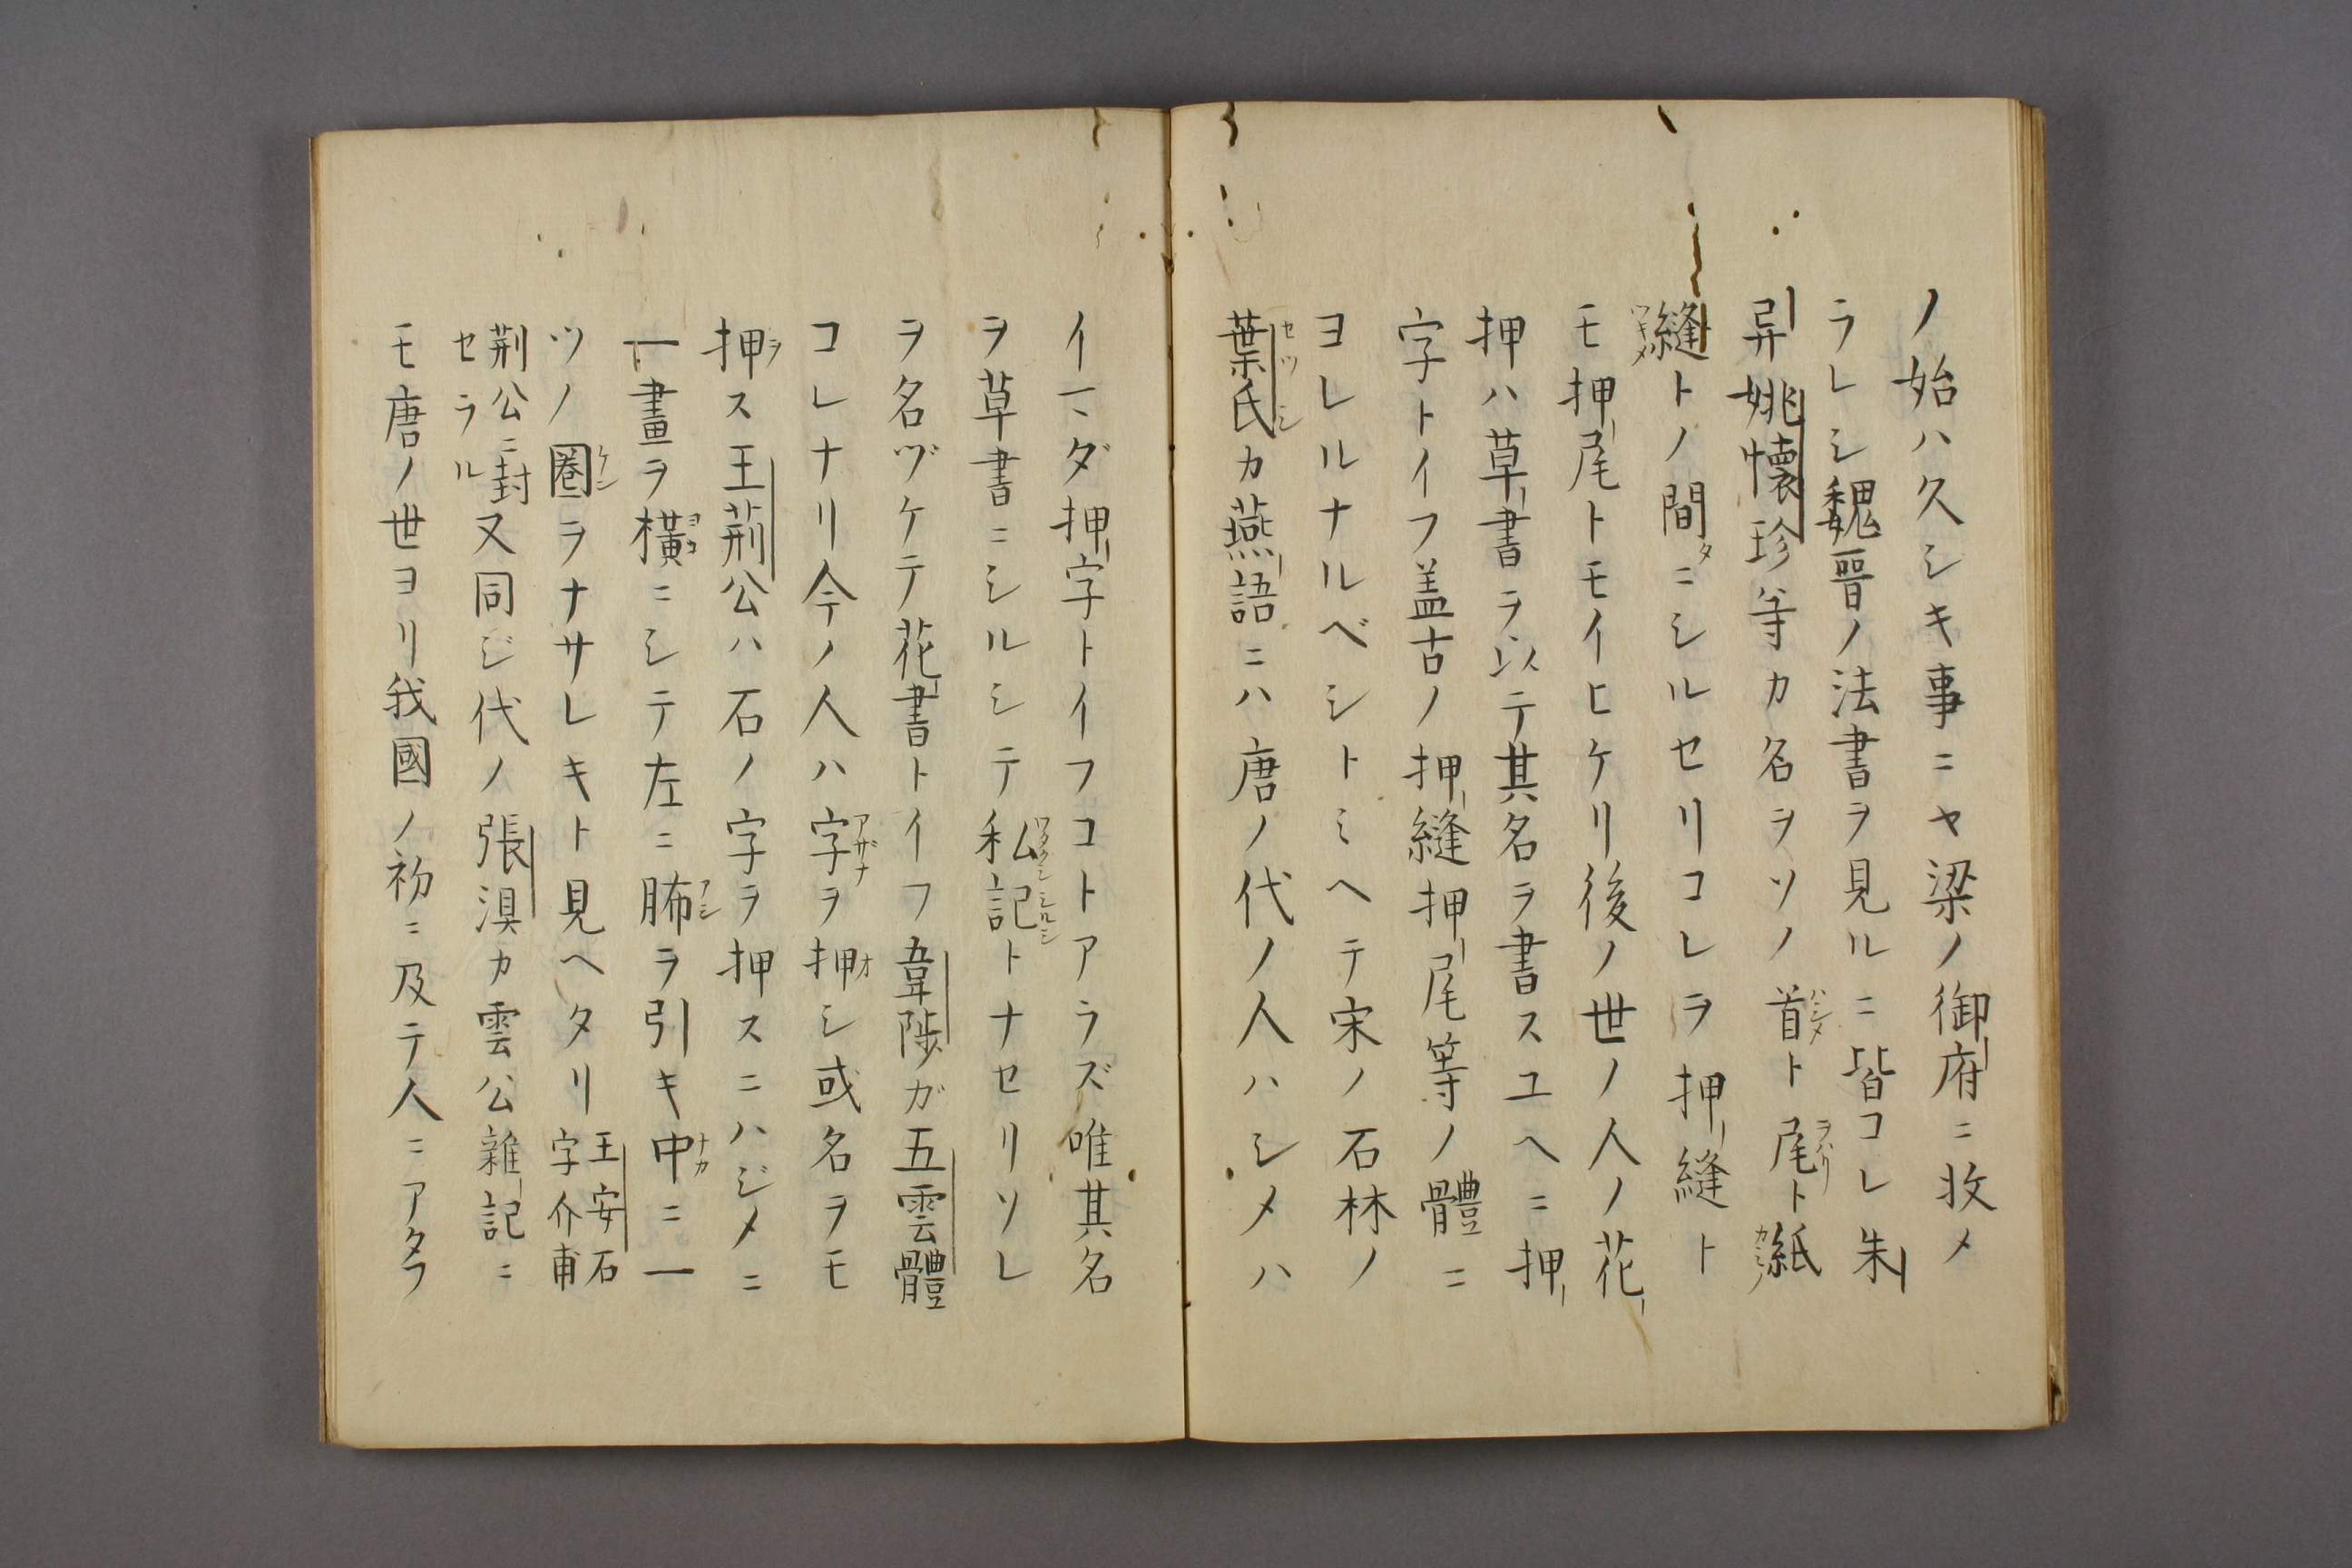 ノ始ハ久シキ事ニヤ梁ノ御府ニ收メ
ラレシ魏晉ノ法書ヲ見ルニ皆コレ朱
异姚懷珍等カ名ヲソノ首ト尾ト紙
縫トノ間ニシルセリコレヲ押縫ト
モ押尾トモイヒケリ後ノ世ノ人ノ花
押ハ草書ヲ以テ其名ヲ書スユヘニ押
字トイフ盖古ノ押縫押尾等ノ體ニ
ヨレルナルベシトミヘテ宋ノ石林ノ
葉氏カ燕語ニハ唐ノ代ノ人ハシメハ
イマダ押字トイフコトアラズ唯其名
ヲ草書ニシルシテ私記トナセリソレ
ヲ名ヅケテ花書トイフ韋陟ガ五雲體
コレナリ今ノ人ハ字ヲ押シ或名ヲモ
押ス王荊公ハ石ノ字ヲ押スニハジメニ
一畫ヲ橫ニシテ左ニ胏ヲ引キ中ニ一
ツノ圈ヲナサレキト見ヘタリ王安石字介甫
荊公ニ封セラル又同ジ代ノ張淏カ雲公雜記ニ
モ唐ノ世ヨリ我國ノ初ニ及テ人ニアタフ